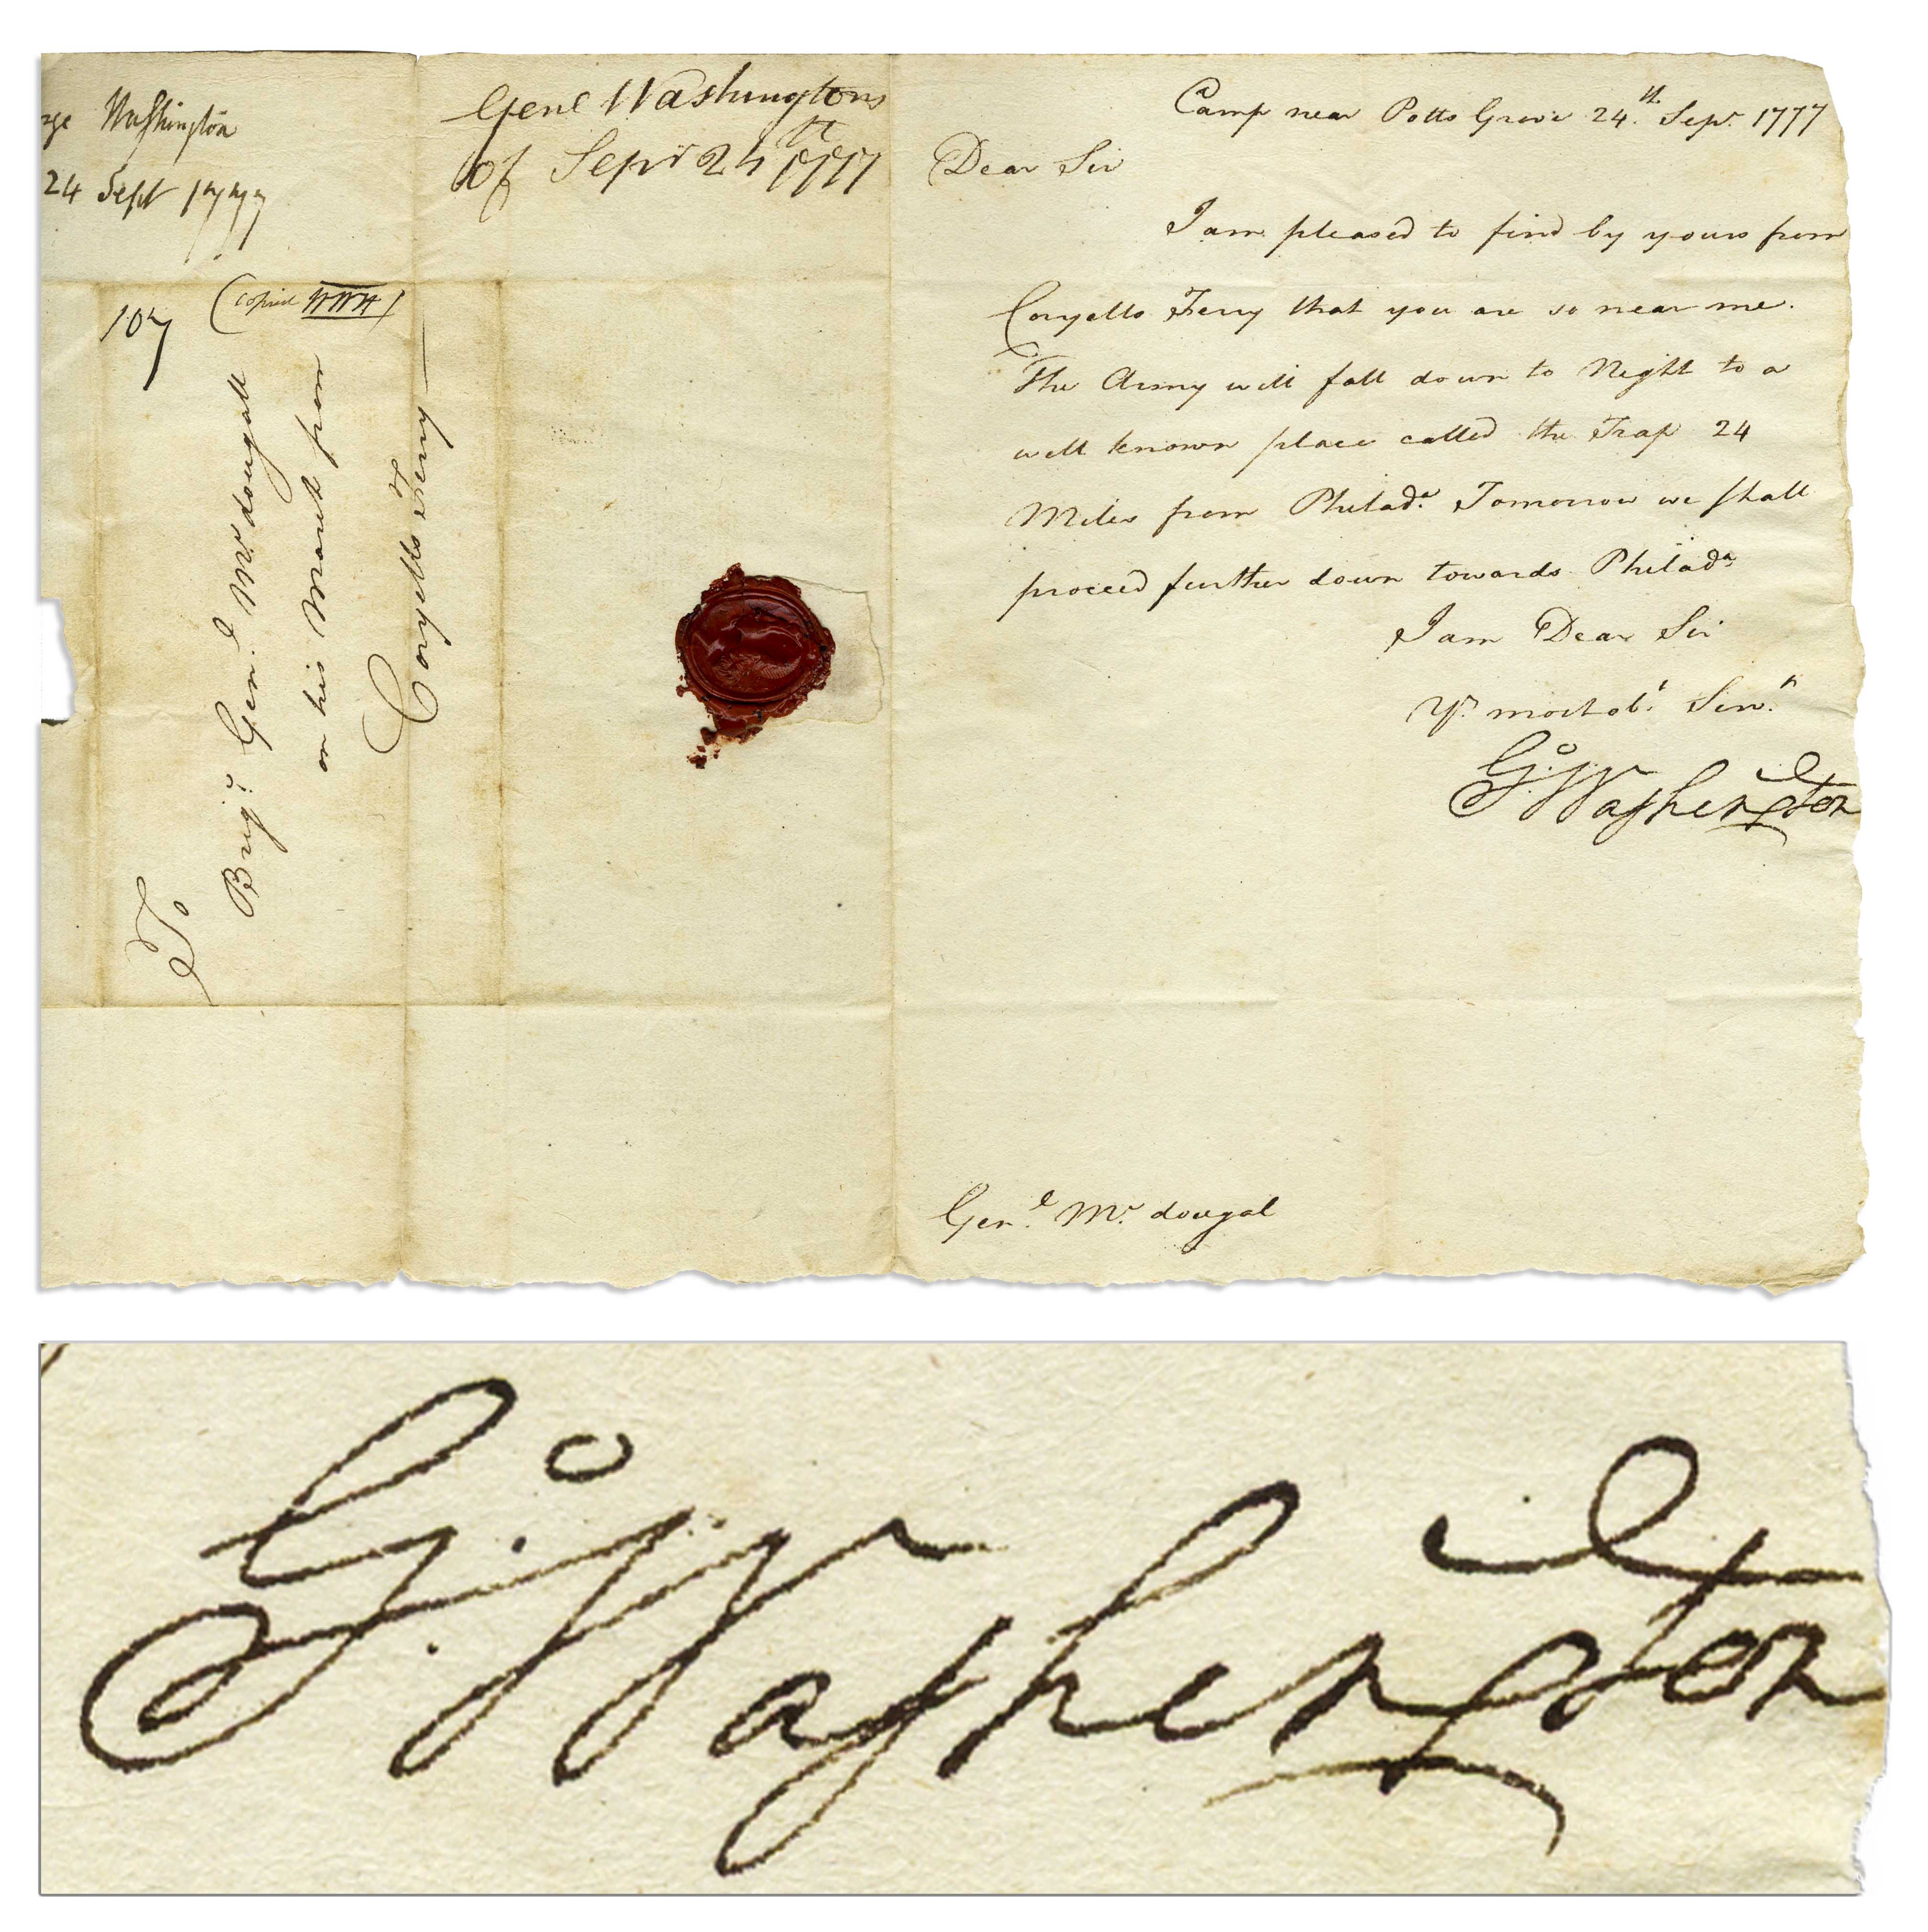 rge Washington
24 Sept 1777
107
(copied WWH)
To
Brigr. Genl. Mcdougall
on his March from
Coryells Ferry
Genl Washingtons
of Sepr 24th 1777
Camp near Potts Grove 24th. Sepr. 1777
Dear Sir
I am pleased to find by yours from
Coryells Ferry that you are so near me.
The Army will fall down to Night to a
well known place called the Trap 24
Miles from Philada. Tomorrow we shall
proceed further down towards Philada.
I am Dear Sir
Yr. most obt. Servt.
Go: Washington
Genl. Mcdougal
Go: Washington